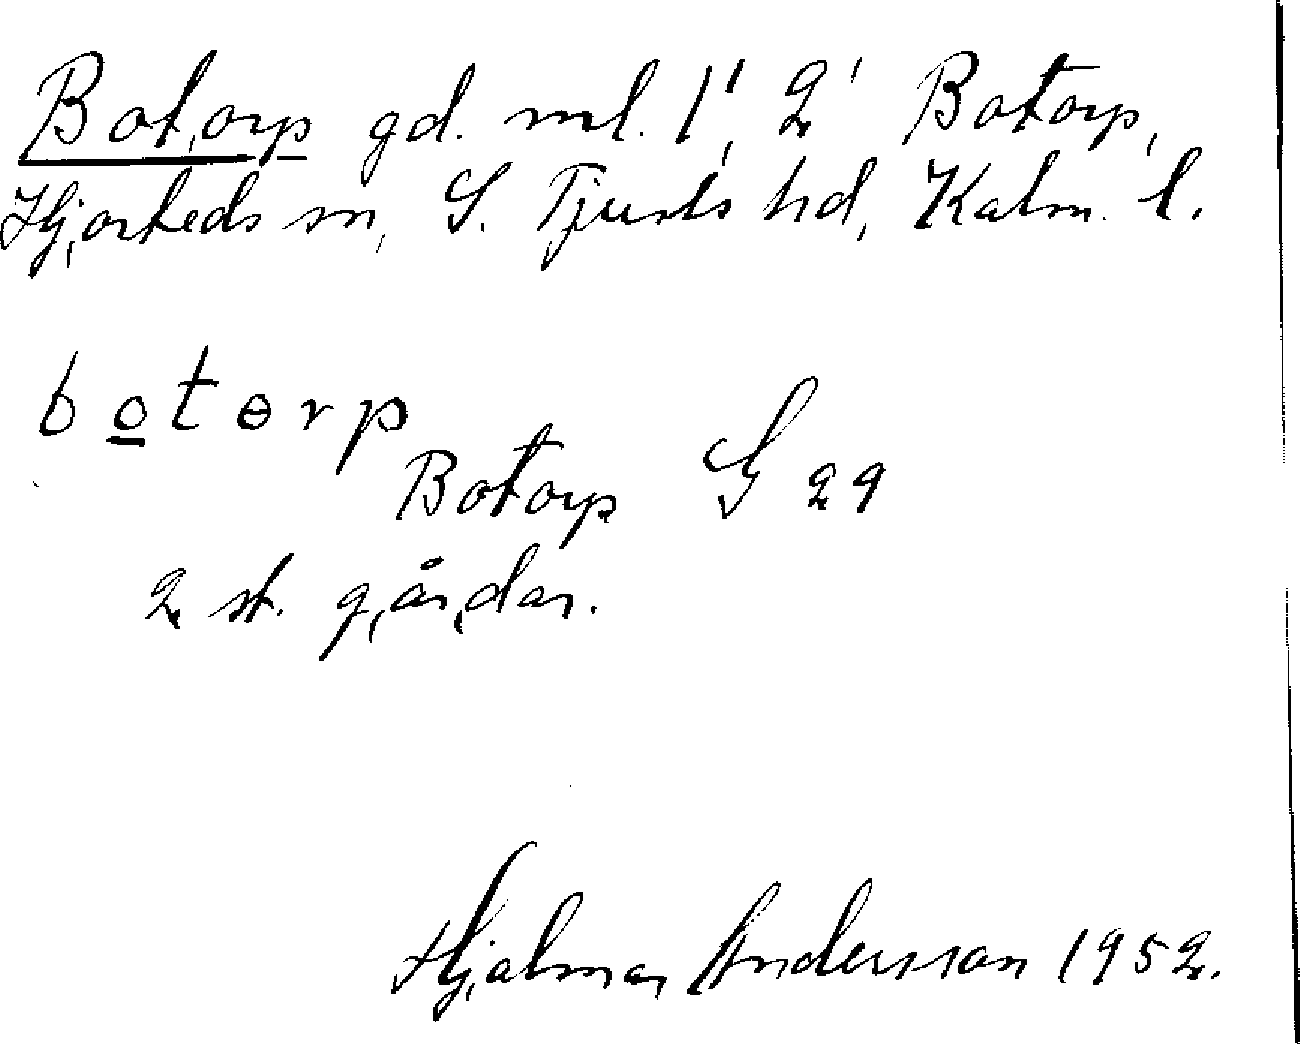 Botorp gd. ml. 1', 2' Botorp,
Hjorteds sn, S. Tjusts hd, Kalm. l.
botɵrp
Botorp G 29
2 st. gårdar.
Hjalmar Andersson 1952.